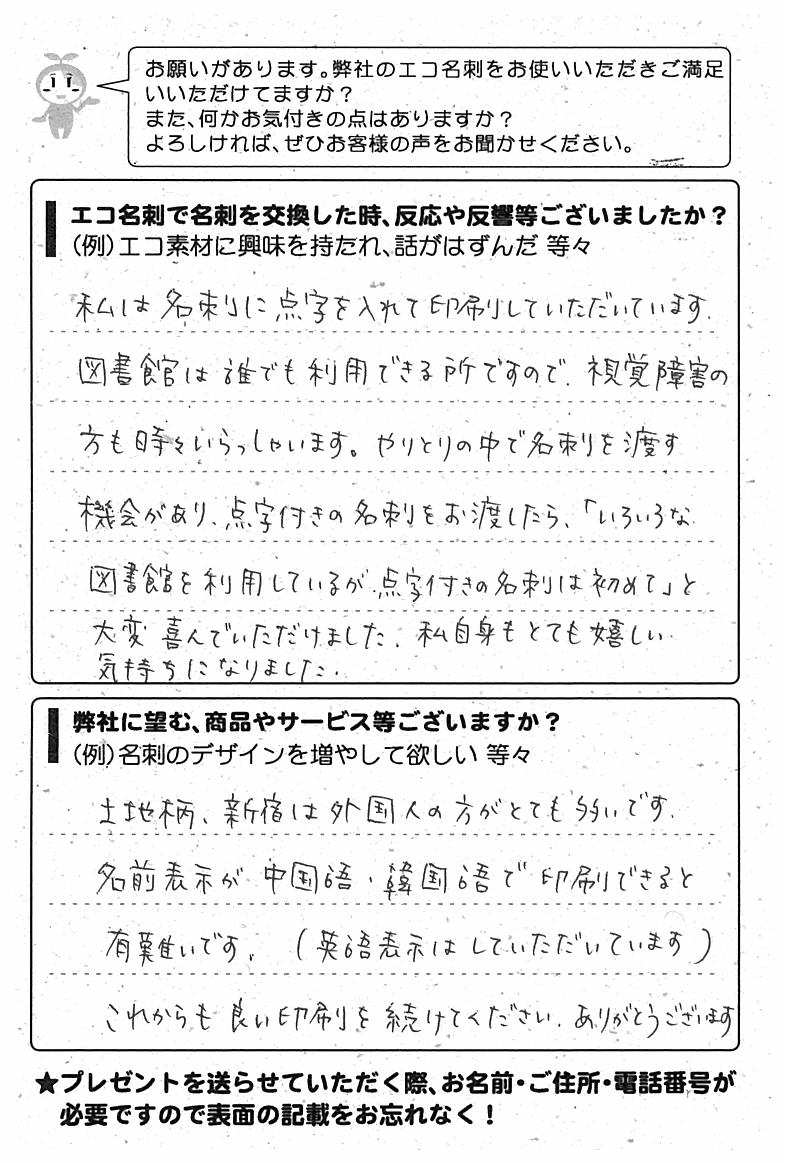 お願いがあります。弊社のエコ名刺をお使いいただきご満足
いいただけてますか？
また、何かお気付きの点はありますか？
よろしければ、ぜひお客様の声をお聞かせください。
エコ名刺で名刺を交換した時、反応や反響等ございましたか？
（例）エコ素材に興味を持たれ、話がはずんだ 等々
私は名刺に点字を入れて印刷していただいています.
図書館は誰でも利用できる所ですので、視覚障害の
方も時々いらっしゃいます。やりとりの中で名刺を渡す
機会があり、点字付きの名刺をお渡ししたら、「いろいろな
図書館を利用しているが、点字付きの名刺は初めて」と
大変喜んでいただけました. 私自身もとても嬉しい
気持ちになりました.
弊社に望む、商品やサービス等ございますか？
（例）名刺のデザインを増やして欲しい 等々
土地柄、新宿は外国人の方がとても多いです.
名前表示が中国語・韓国語で印刷できると
有難いです. （英語表示はしていただいています）
これからも良い印刷を続けてください. ありがとうございます
★プレゼントを送らせていただく際、お名前・ご住所・電話番号が
必要ですので表面の記載をお忘れなく！